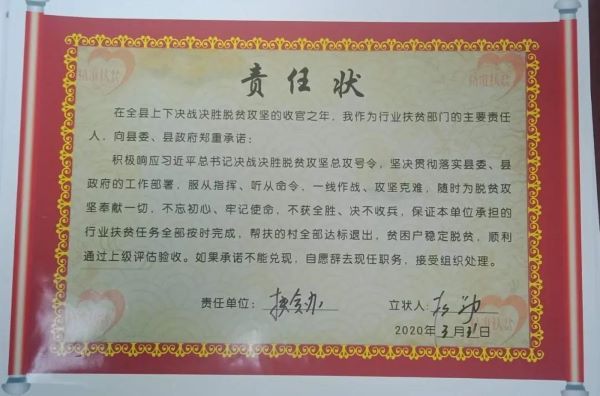 责任状
在全县上下决战决胜脱贫攻坚的收官之年，我作为行业扶贫部门的主要责任
人，向县委、县政府郑重承诺：
积极响应习近平总书记决战决胜脱贫攻坚总攻号令，坚决贯彻落实县委、县
政府的工作部署，服从指挥、听从命令，一线作战、攻坚克难，随时为脱贫攻
坚奉献一切，不忘初心、牢记使命，不获全胜、决不收兵，保证本单位承担的
行业扶贫任务全部按时完成，帮扶的村全部达标退出，贫困户稳定脱贫，顺利
通过上级评估验收。如果承诺不能兑现，自愿辞去现任职务，接受组织处理。
责任单位：扶贫办 立状人：
2020年3月31日
精准扶贫